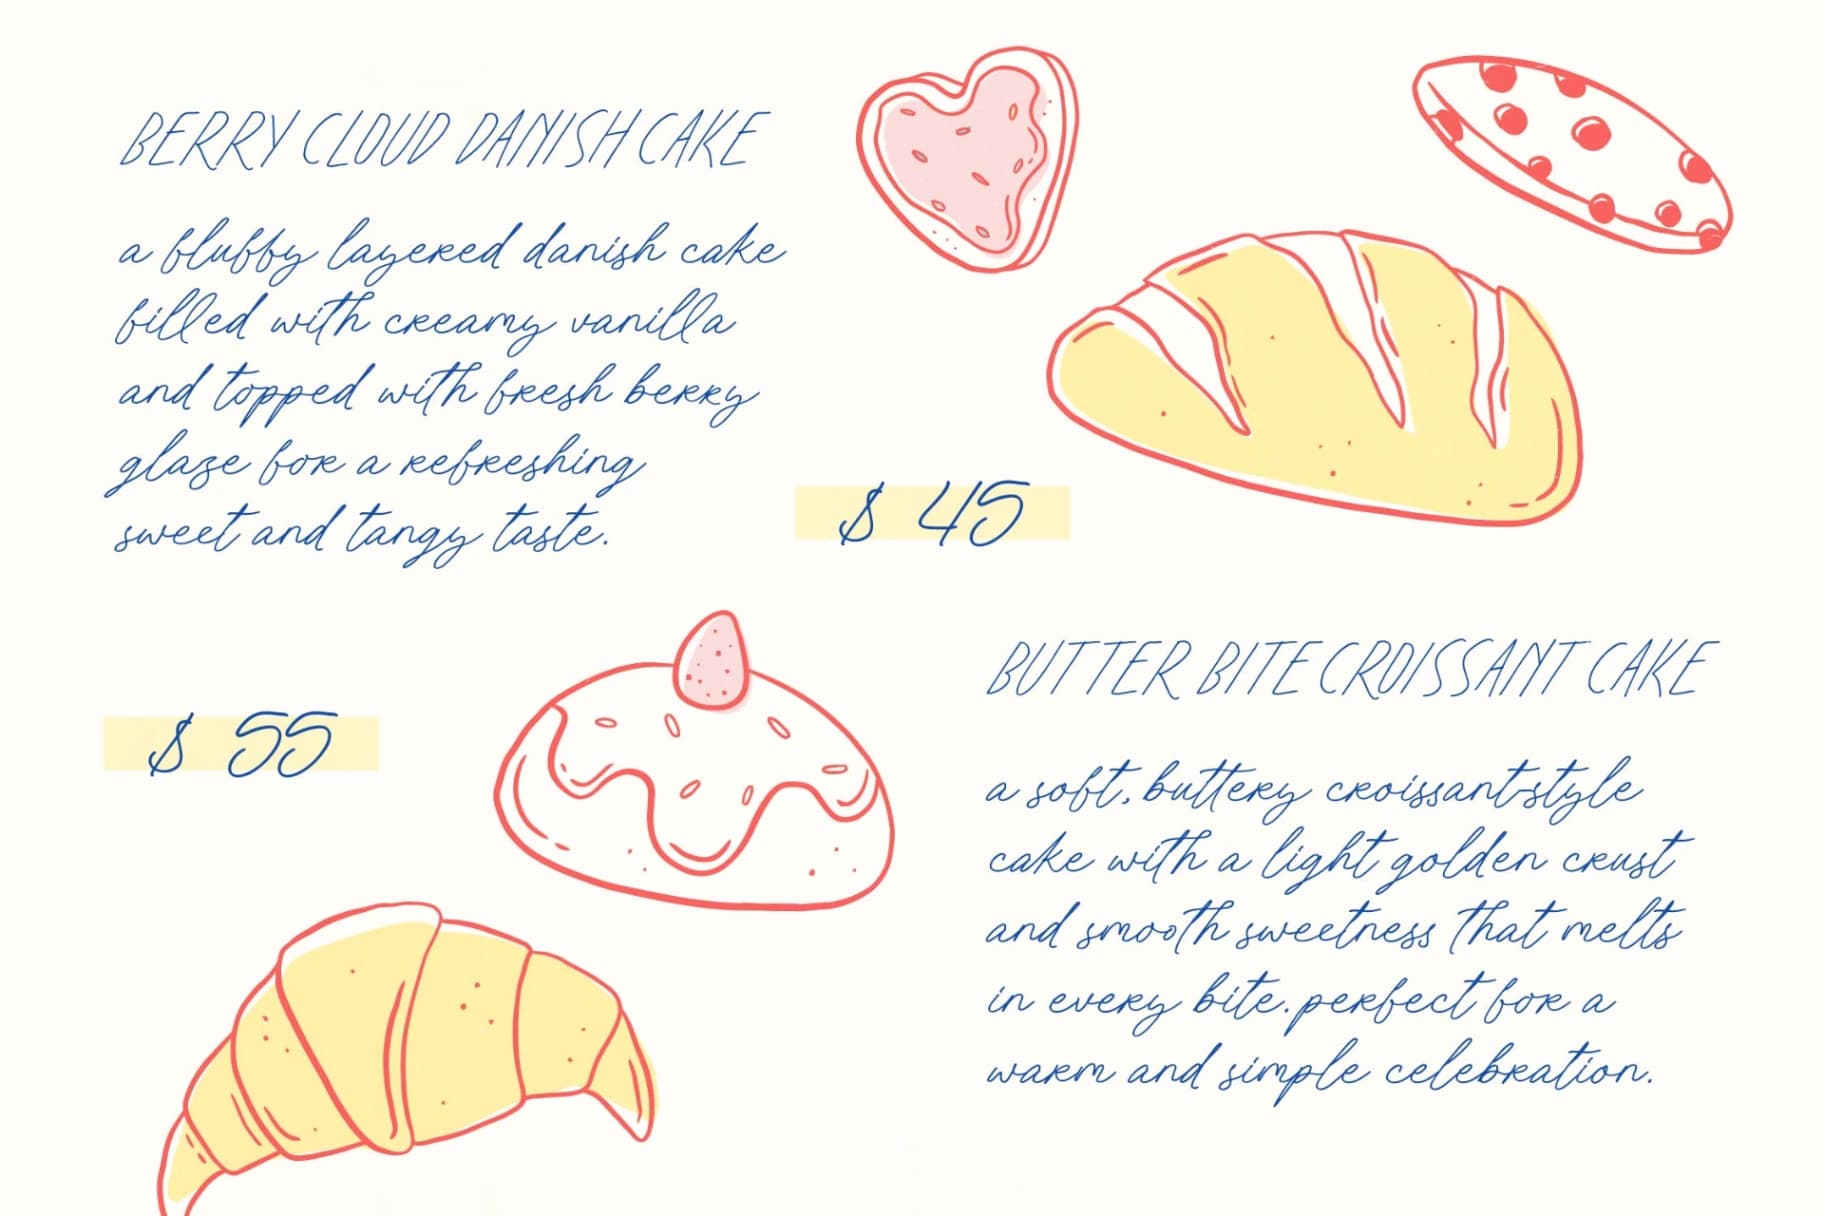 BERRY CLOUD DANISH CAKE
a fluffy layered danish cake
filled with creamy vanilla
and topped with fresh berry
glaze for a refreshing
sweet and tangy taste.
$ 45
$ 55
BUTTER BITE CROISSANT CAKE
a soft, buttery croissant-style
cake with a light golden crust
and smooth sweetness that melts
in every bite. perfect for a
warm and simple celebration.